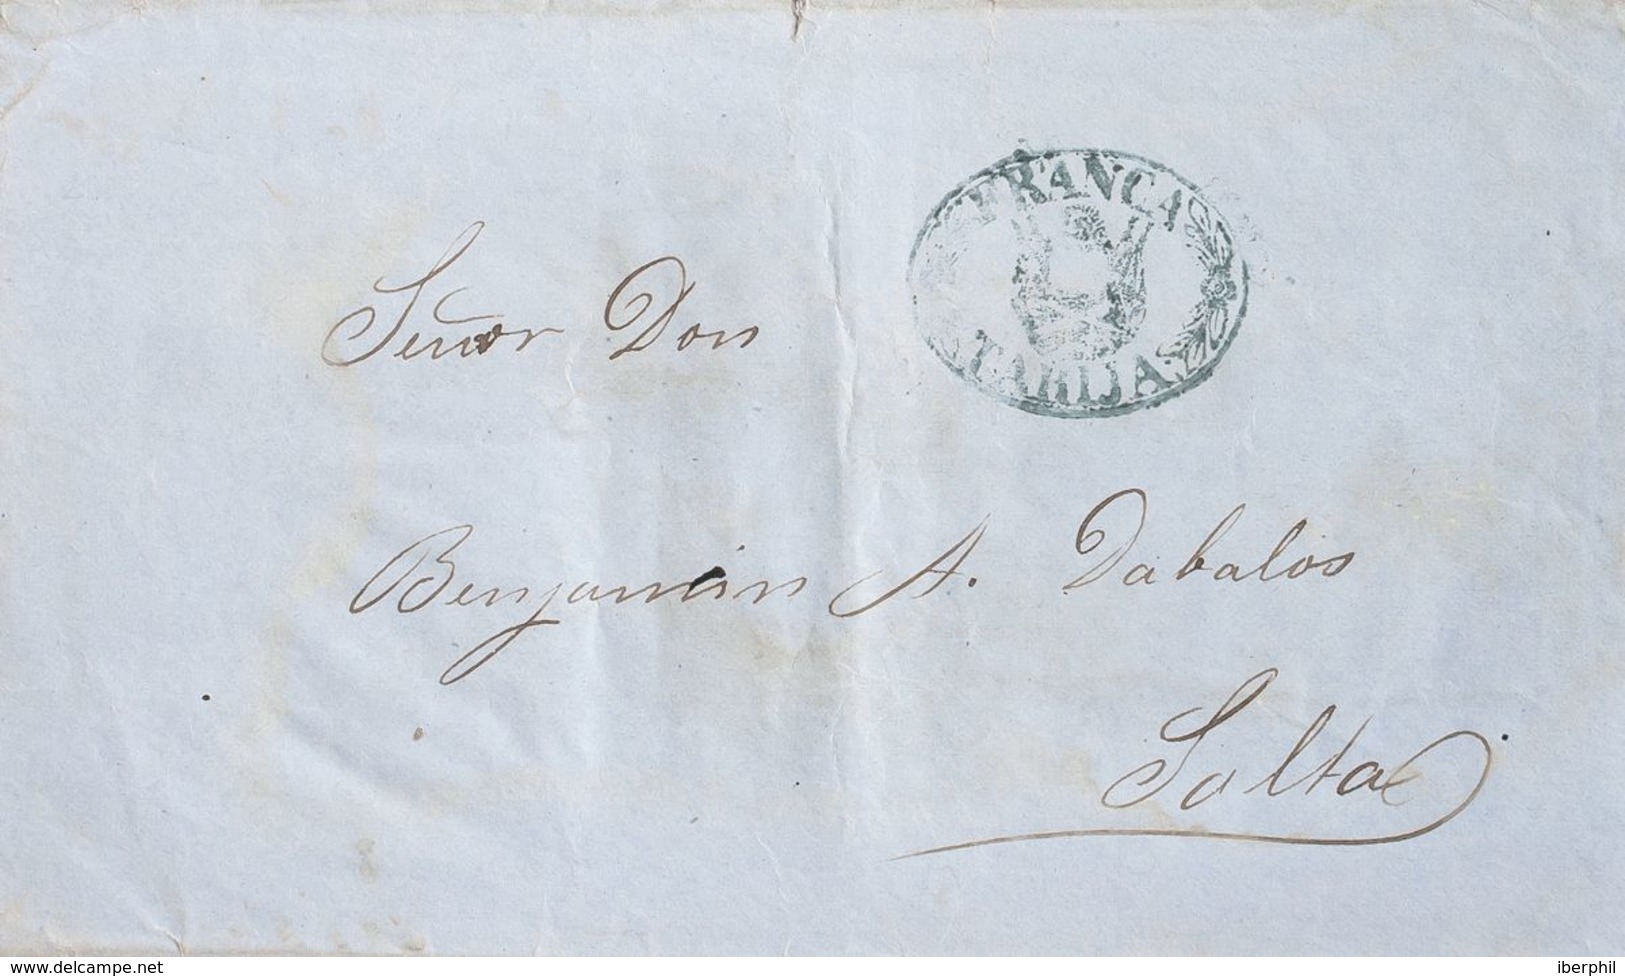 FRANCA
TARIJA
Señor Don
Benjamin A. Dabalos
Salta
www.delcampe.net
iberphil